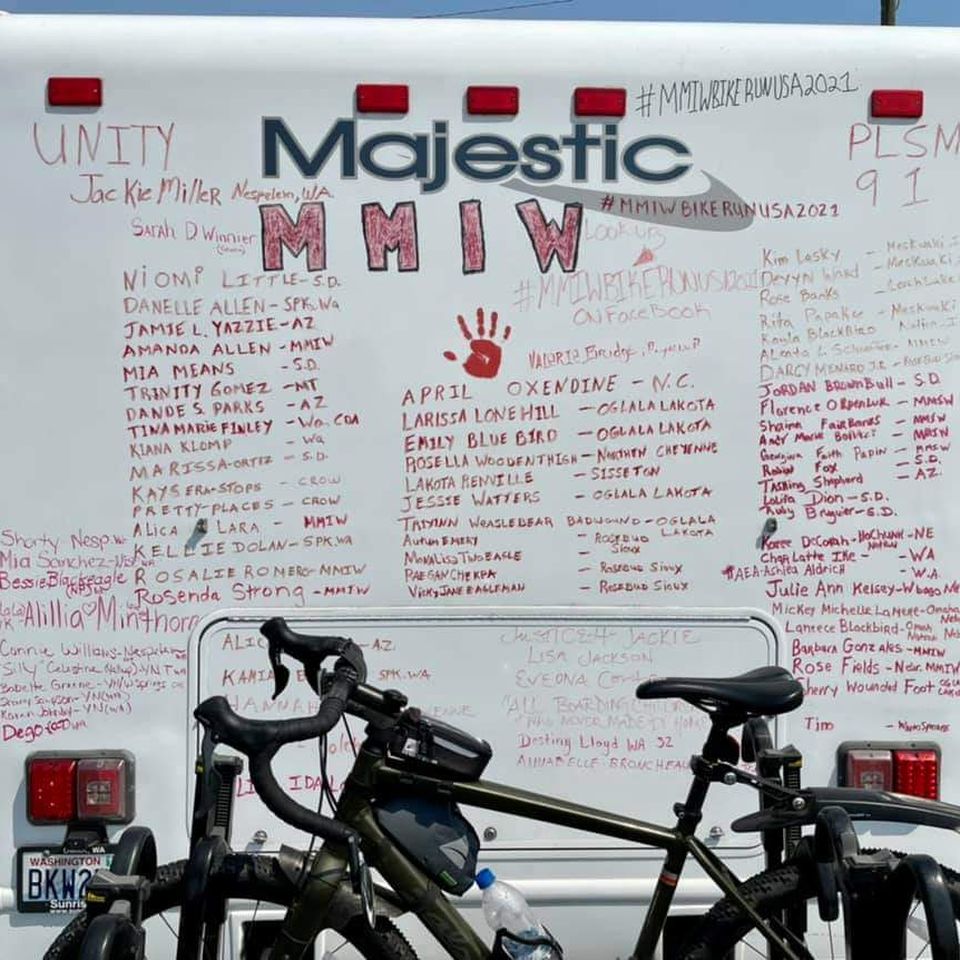 #MMIWBIKERUNUSA2021
UNITY
Majestic
PLSM
91
Jackie Miller Nespelem, WA
MMIW
#MMIWBIKERUNUSA2021
Sarah D. Winnier
LOOK UP
#MMIWBIKERUNUSA2021
ON FACEBOOK
NIOMI LITTLE - S.D.
DANELLE ALLEN - SPK. Wa
JAMIE L. YAZZIE - AZ
AMANDA ALLEN - MMIW
MIA MEANS - S.D.
TRINITY GOMEZ - MT
DANDE S. PARKS - AZ
TINA MARIE FINLEY - Wa. CDA
KIANA KLOMP - Wa
MARISSA-ORTIZ - S.D.
KAYSERA-STOPS - CROW
PRETTY-PLACES - CROW
ALICA LARA - MMIW
KELLIE DOLAN - SPK, WA
ROSALIE ROMERO - MMIW
Rosenda Strong - MMIW
Valerie Bridge,
APRIL OXENDINE - N.C.
LARISSA LONEHILL - OGLALA LAKOTA
EMILY BLUE BIRD - OGLALA LAKOTA
ROSELLA WOODENTHIGH - NORTHERN CHEYENNE
LAKOTA RENVILLE - SISSETON
JESSIE WATTERS - OGLALA LAKOTA
WEASLEBEAR BADWOUND - OGLALA LAKOTA
Autum EMERY - ROSEBUD Sioux
MONALISA TWO EAGLE - ROSEBUD SIOUX
RAEGAN CHEKPA
VICKY JANE EAGLEMAN - ROSEBUD SIOUX
Kim Lasky - Meskwaki
Devyn Ward - Meskwaki
Rose Banks - Leech Lake
Rita Papakee - Meskwaki
Kayla BlackBird
DARCY MENARD JR. - ROSEBUD
JORDAN BROWN BULL - S.D.
Florence - MMIW
Shaina FairBanks - MMIW
Georgina Faith Papin - MMIW
Robin Fox - S.D.
Tashina Shepherd - AZ.
Lolita Dion - S.D.
Ruby Bruguier - S.D.
Karee DeCorah - HoChunk - NE
CharLatte Ike - WA
#AEA - Ashlea Aldrich - W.A.
Julie Ann Kelsey - Wbago Ne
Mickey Michelle LaMere - Omaha
Laneece Blackbird - Omah
Barbara Gonzales - MMIW
Rose Fields - Nebr. MMIW
Sherry Wounded Foot
Tina
Shorty Nesp. Wa
Mia Sanchez
Bessie Blackeagle
Alillia Minthorn
Connie Williams - Nespelem
"Silly" Celestine
Babette Greene
Dego
ALIC AZ
KAMIA SPK.WA
HANNAH
IDA
JUSTICE 4 JACKIE
LISA JACKSON
EVEONA
"ALL BOARDING CHILDREN
WHO NEVER MADE IT HOME
Destiny Lloyd WA 32
ANNABELLE
WASHINGTON
WA
BKW2